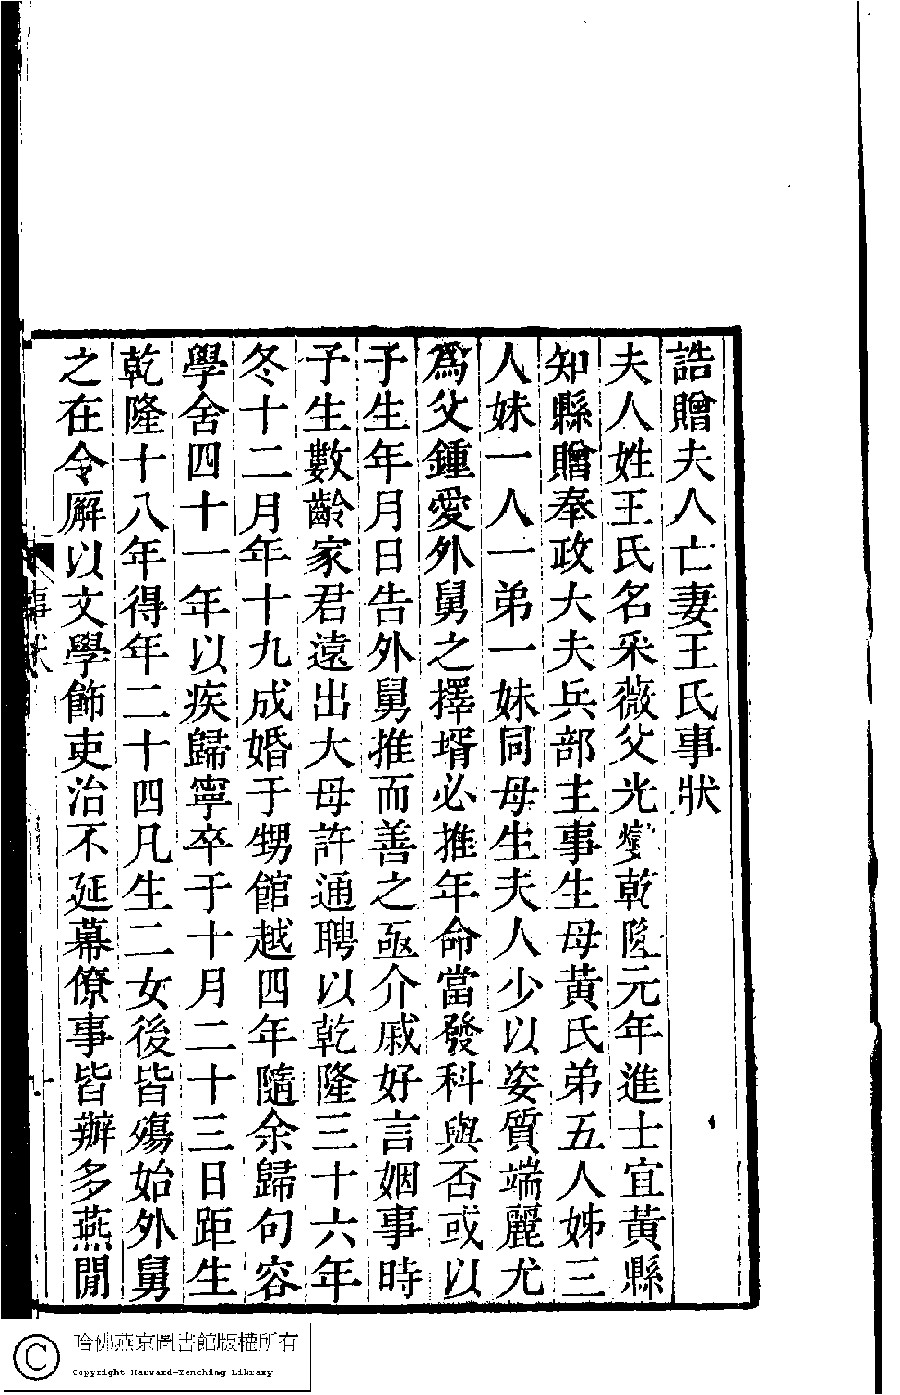 誥贈夫人亡妻王氏事狀
夫人姓王氏名采薇父光燮乾隆元年進士宜黃縣
知縣贈奉政大夫兵部主事生母黃氏弟五人姊三
人妹一人一弟一妹同母生夫人少以姿質端麗尤
爲父鍾愛外舅之擇壻必推年命當發科與否或以
予生年月日告外舅推而善之亟介戚好言姻事時
予生數齡家君遠出大母許通聘以乾隆三十六年
冬十二月年十九成婚于甥館越四年隨余歸句容
學舍四十一年以疾歸寧卒于十月二十三日距生
乾隆十八年得年二十四凡生二女後皆殤始外舅
之在令廨以文學飾吏治不延幕僚事皆辦多燕閒
事狀
哈佛燕京圖書館版權所有
Copyright Harvard-Yenching Library